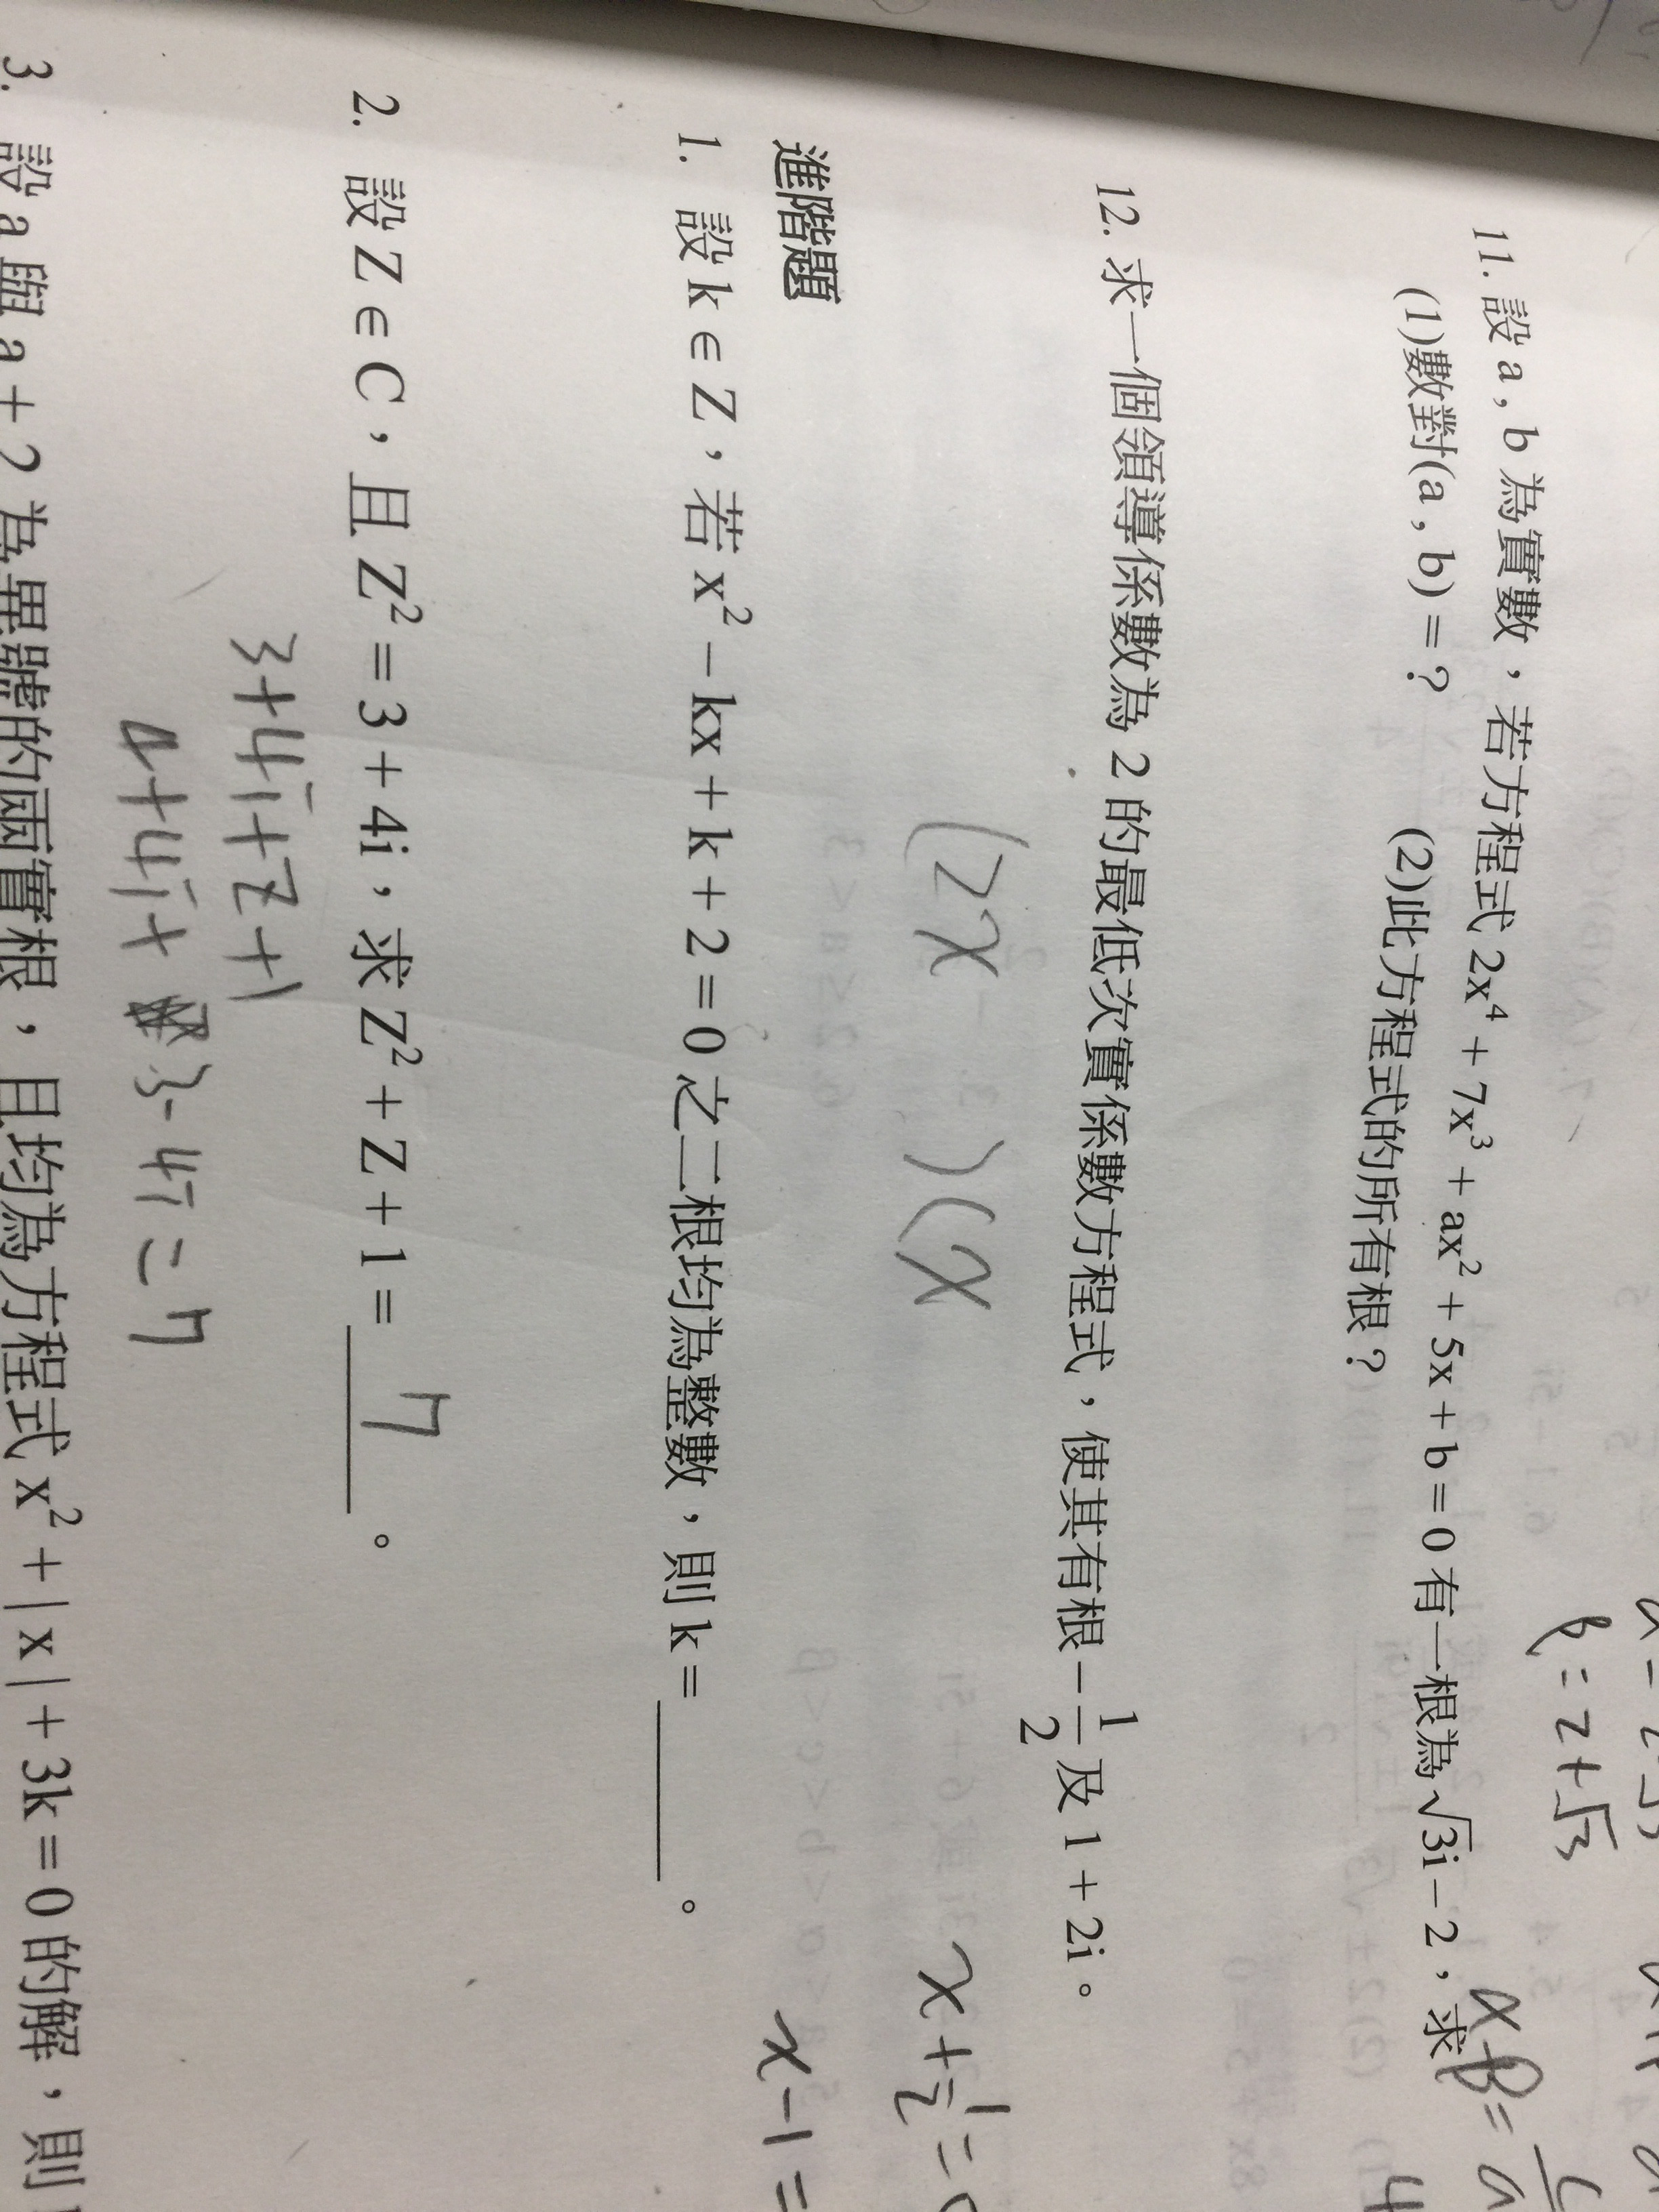 β = 2+√3
11. 設 a , b 為實數，若方程式 2x⁴ + 7x³ + ax² + 5x + b = 0 有一根為 √3i − 2，求
α+β =
(1)數對(a , b) = ? (2)此方程式的所有根？
12. 求一個領導係數為 2 的最低次實係數方程式，使其有根 −1/2 及 1 + 2i。
(2x )(x
x+1/2=0
x-1=
進階題
1. 設 k ∈ Z，若 x² − kx + k + 2 = 0 之二根均為整數，則 k = ______。
2. 設 Z ∈ C，且 Z² = 3 + 4i，求 Z² + Z + 1 = 7。
3+4i+z+1
4+4i+ 3-4i = 7
3. 設 a 與 a + 2 為異號的兩實根，且均為方程式 x² + | x | + 3k = 0 的解，則